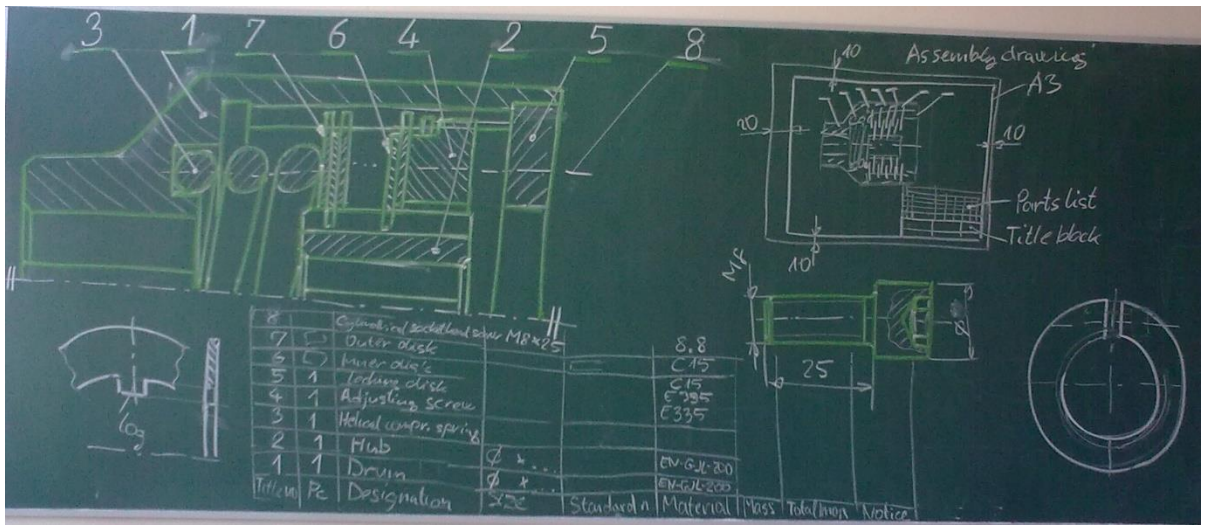 3 1 7 6 4 2 5 8
Assembly drawing
A3
10
20
10
Parts list
Title block
10
M8
25
8
log
8 Cylindrical sockethead screw M8*25 8.8
7 Outer disk C15
6 Inner disk C15
5 1 locking disk E335
4 1 Adjusting screw E335
3 1 Helical compr. spring
2 1 Hub ϕ *... EN-GJL-200
1 1 Drum ϕ *... EN-GJL-200
Pc Designation SIZE Standard n Material Mass Notice